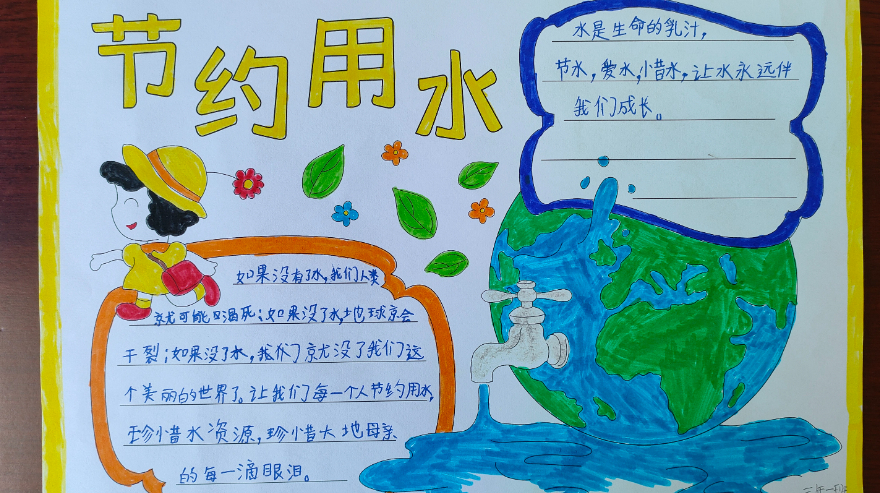 节约用水
水是生命的乳汁，
节水，爱水，惜水，让水永远伴
我们成长。
如果没有了水，我们人类
就可能口渴死；如果没了水，地球就会
干裂；如果没了水，我们就没了我们这
个美丽的世界了。让我们每一个人节约用水，
珍惜水资源，珍惜大地母亲
的每一滴眼泪。